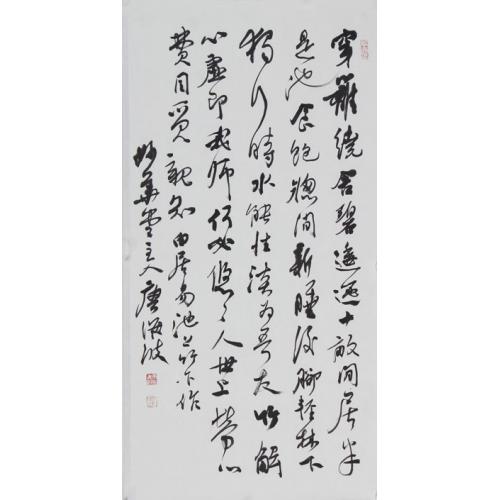 穿籬繞舍碧逶迤十畝間居半
是池食飽窗間新睡後腳輕林下
獨行時水能性淡為吾友竹解
心虛即我師何必悠々人世上勞心
費目覓親知 白居易池上竹下作
華堂主人唐波